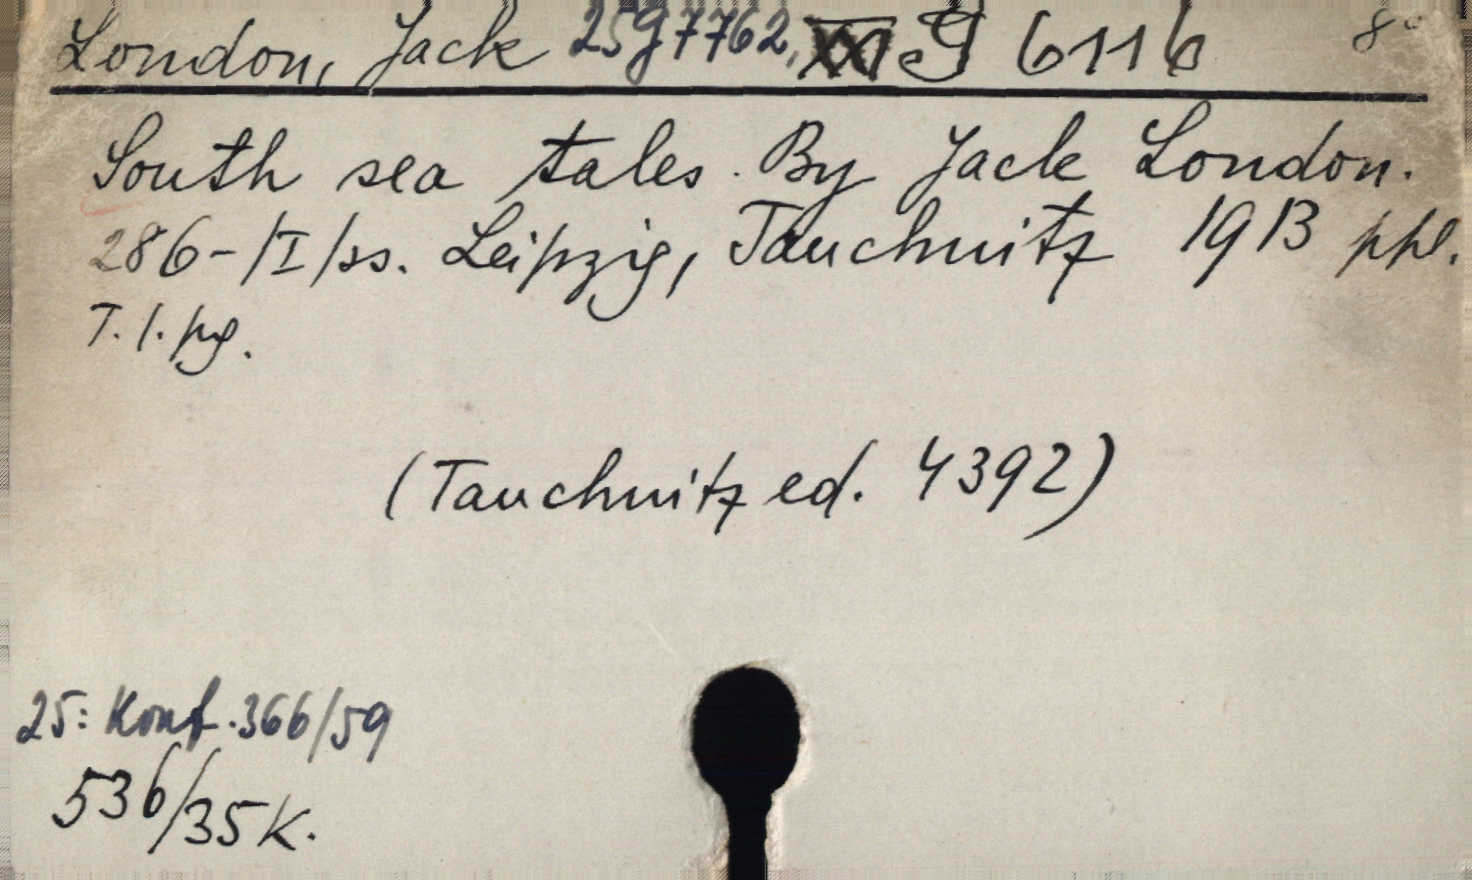 London, Jack 25g7762, G 6116 8°
South sea tales. By Jack London.
286-/I/ss. Leipzig, Tauchnitz 1913 ppl.
T. l. pg.
(Tauchnitz ed. 4392)
25: Konf. 366/59
536/35 K.